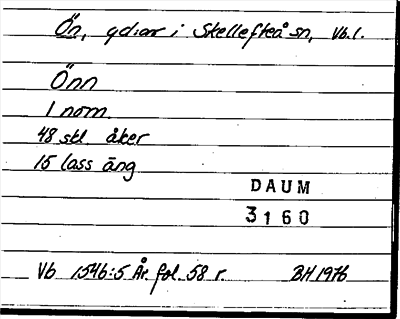 Ön, gdar i Skellefteå sn, Vb.l.
Önn
1 nom.
48 skl. åker
15 lass äng
DAUM
3160
Vb 1546:5 År fol. 58 r. BH 1976